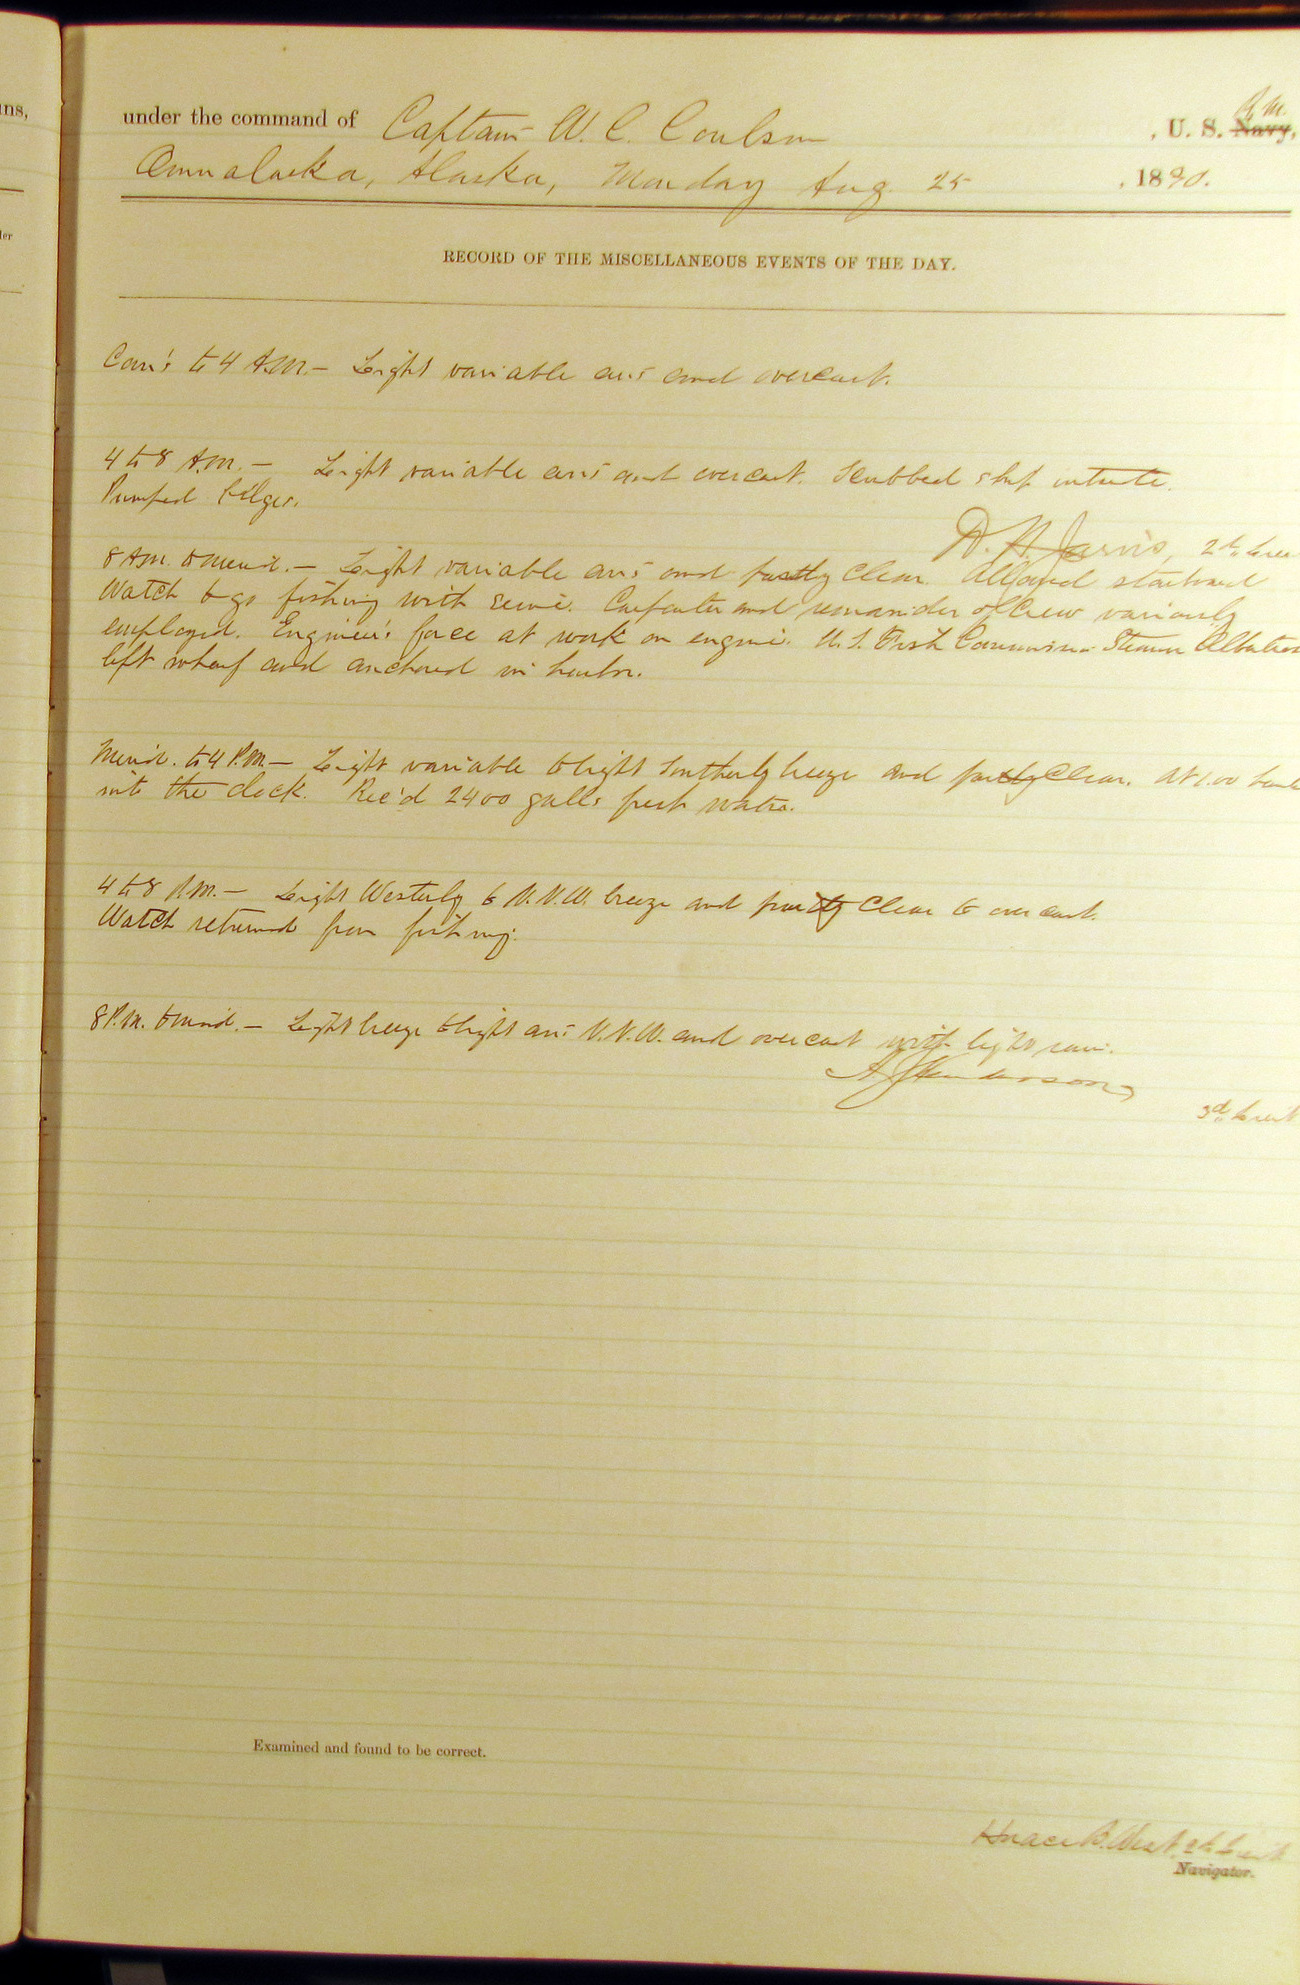 ins,
ler
under the command of Captain W. C. Coulson, U. S. Navy, R. M.
Ounalaska, Alaska, Monday Aug. 25, 1890.
RECORD OF THE MISCELLANEOUS EVENTS OF THE DAY.
Com's to 4 A.M. — Light variable airs and overcast.
4 to 8 A.M. — Light variable airs and overcast. Scrubbed ship
Pumped bilges.
D. H. Jarvis, 2nd Lieu
8 A.M. to Merid. — Light variable airs and partly clear. Allowed starboard
Watch to go fishing with seine. Carpenter and remainder of Crew variously
employed. Engineer's force at work on engine. U.S. Fish Commission Steamer Albatross
left wharf and anchored in harbor.
Merid. to 4 P.M. — Light variable to light Southerly breeze and partly clear. At 1.00
into the dock. Rec'd 2400 galls fresh water.
4 to 8 P.M. — Light Westerly to N.N.W. breeze and partly Clear to overcast.
Watch returned from fishing.
8 P.M. to mid. — Light breeze to light airs N.N.W. and overcast with light rain.
A J Henderson
3d Lieut
Examined and found to be correct.
Horace B. West, 2d Lieut
Navigator.